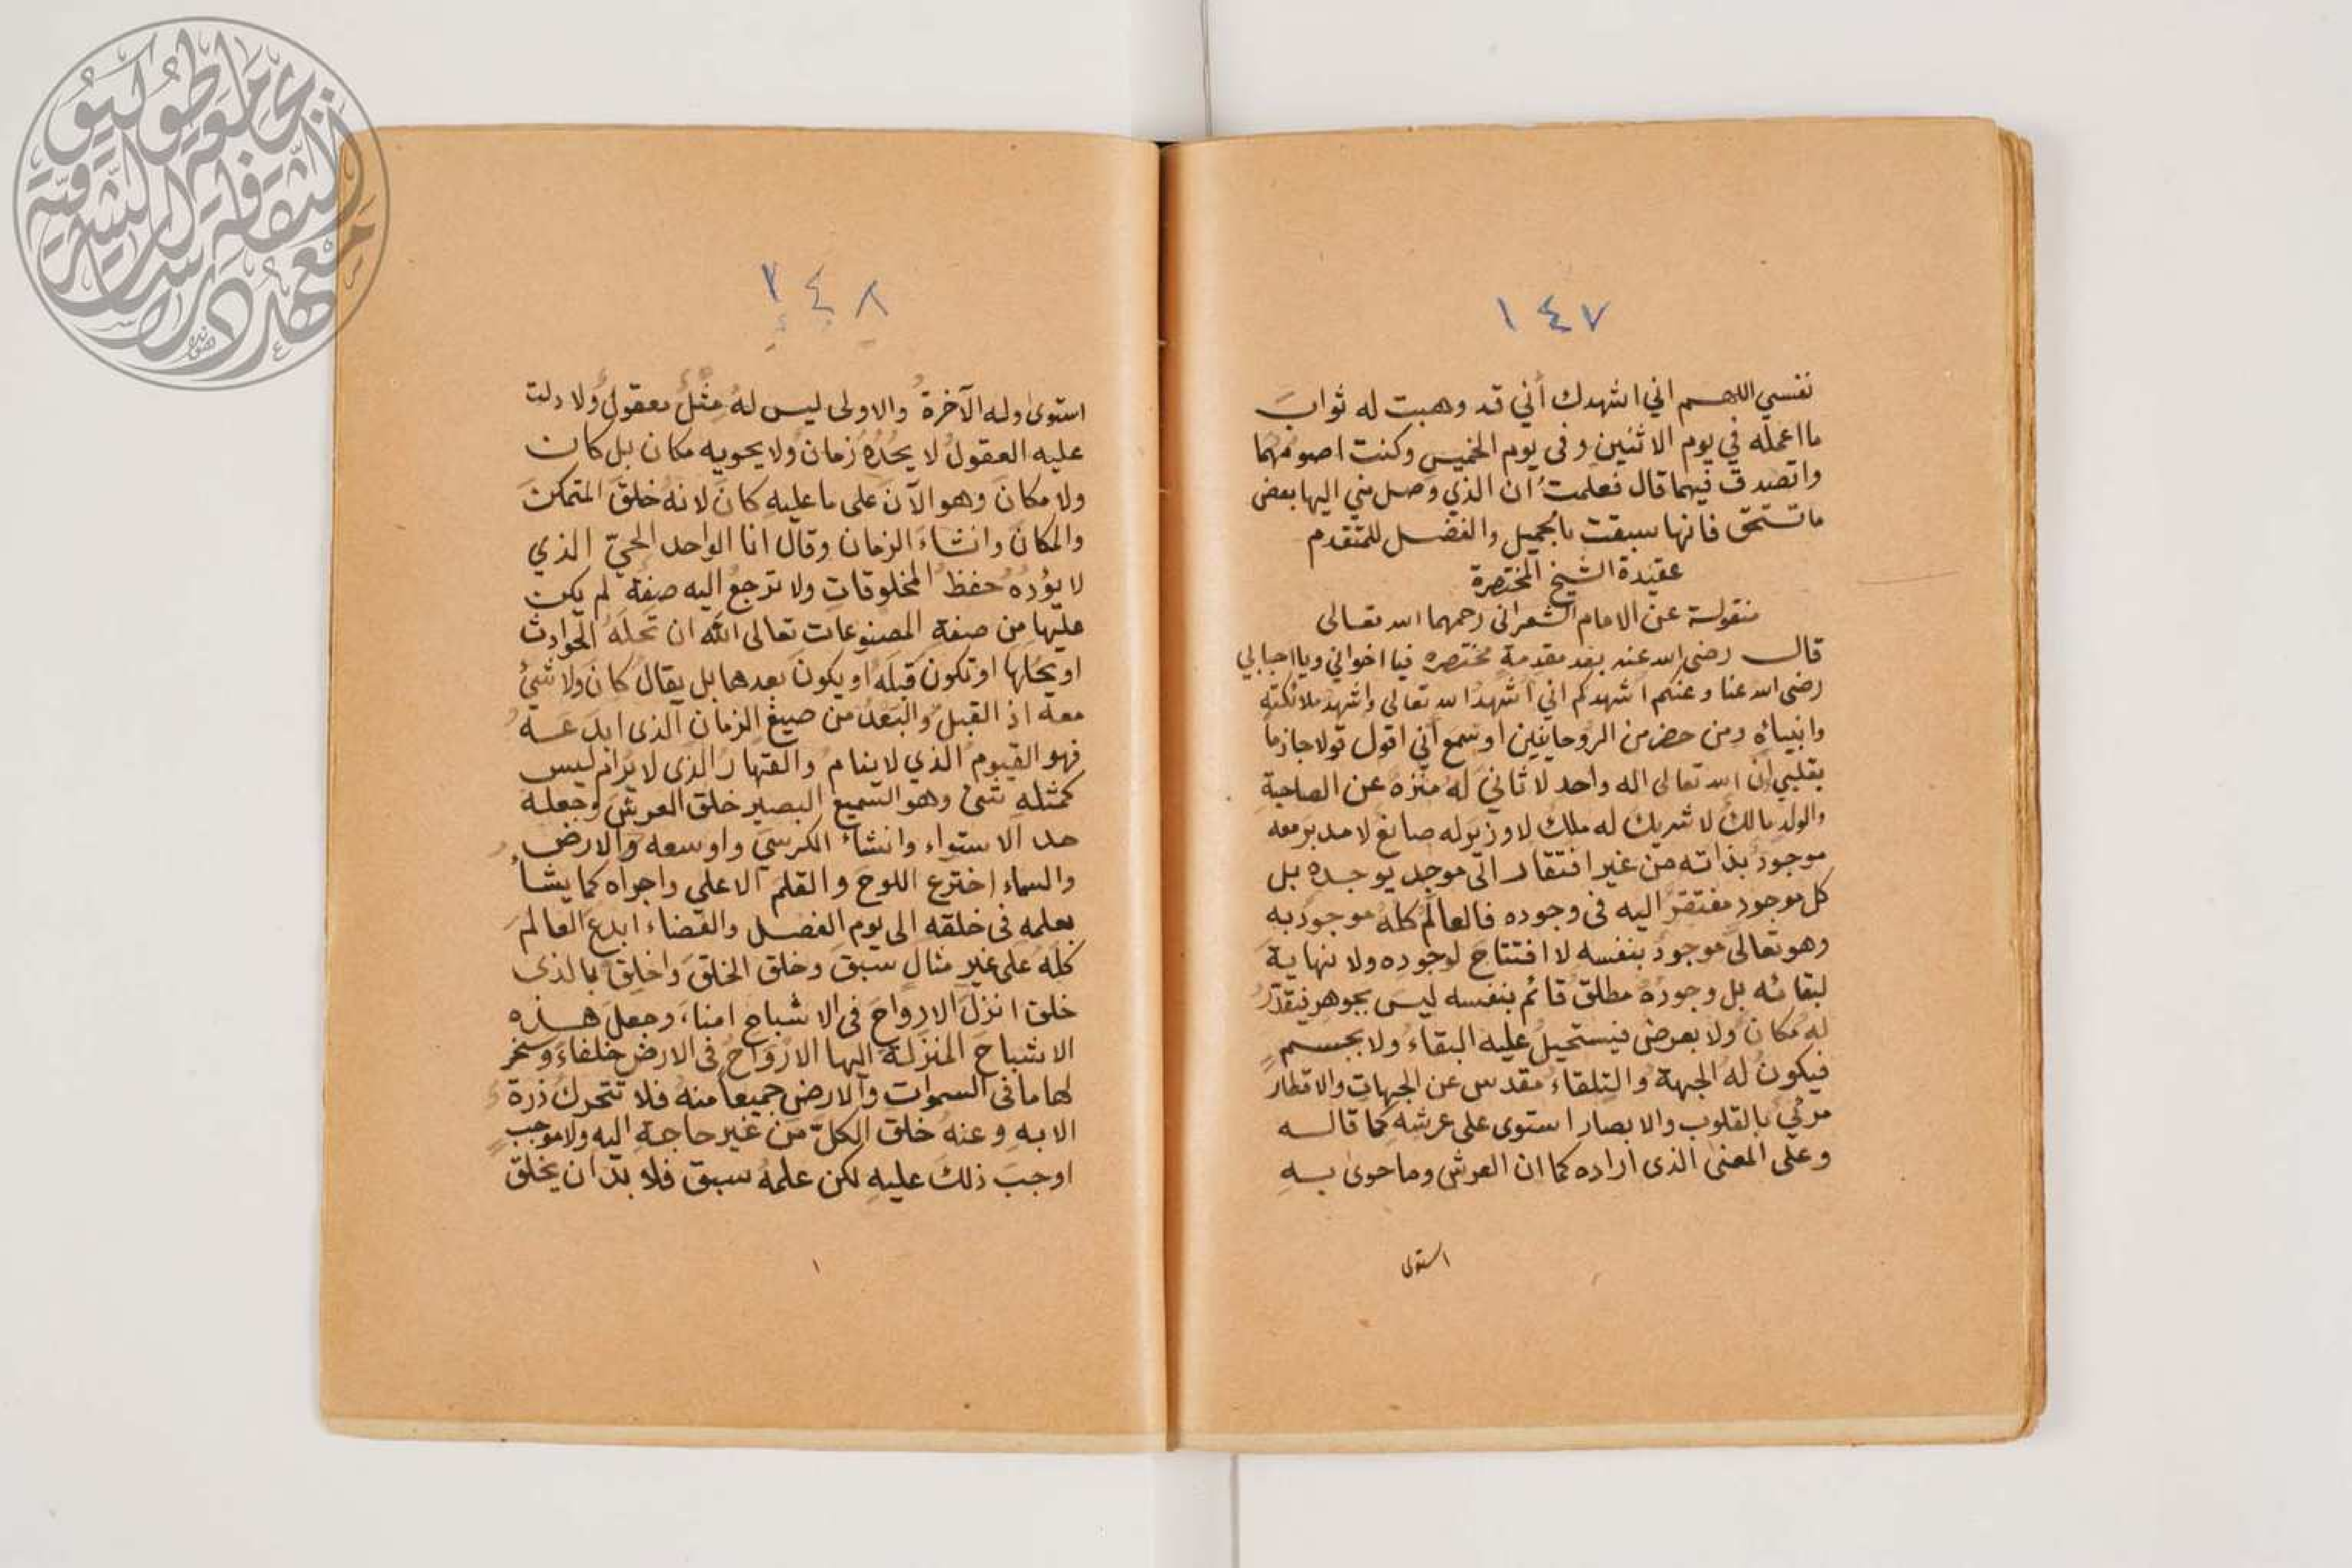 ١٤٧
نفسي اللهم اني اشهدك أني قد وهبت له ثوابَ
ما اعمله في يوم الاثنين وفى يوم الخميس وكنت اصومهما
واتصدق فيهما قال فعلمتُ ان الذي وصل مني اليها بعض
ما تستحق فانها سبقت بالجميل والفضل للمتقدم
عقيدة الشيخ المختصرة
منقولة عن الامام الشعرانى رحمهما الله تعالى
قال رضى الله عنه بعد مقدمةٍ مختصره فيا اخواني ويا احبابي
رضى الله عنا وعنكم اشهدكم اني اشهدُ الله تعالى واشهد ملائكته
وانبيائِه ومن حضر من الروحانيين او سمع أني اقول قولا جازماً
بقلبي ان الله تعالى اله واحد لا ثانيَ لهُ منزهٌ عن الصاحبة
والولدِ مالكٌ لا شريك له ملكٌ لا وزير له صانعٌ لا مدبر معه
موجودٌ بذاته من غير افتقار الى موجد يوجده بل
كل موجودٍ مفتقرٌ اليه فى وجوده فالعالمُ كلهُ موجودٌ به
وهو تعالى موجودٌ بنفسه لا افتتاحَ لوجوده ولا نهايةَ
لبقائه بل وجودُهُ مطلقٌ قائم بنفسه ليسَ بجوهرٍ فيقدَّرُ
لهُ مكانٌ ولا بعرض فيستحيلُ عليه البقاءُ ولا بجسمٍ
فيكونُ لهُ الجهةُ والتلقاءُ مقدس عن الجهاتِ والاقطار
مرئيٌ بالقلوب والابصار استوى على عرشهِ كما قاله
وعلى المعنى الذى اراده كما ان العرش وما حوى بهِ
استوى
١٤٨
استوى وله الآخرةُ والاولى ليس لهُ مِثْلٌ معقولٌ ولا دلت
عليه العقولُ لا يحُدُّهُ زمانٌ ولا يحويه مكان بل كان
ولا مكانَ وهو الآن على ما عليهِ كانَ لانهُ خلقَ المتمكنَ
والمكانَ وانشاءَ الزمان وقال انا الواحد الحيّ الذي
لا يؤُدُهُ حفظُ المخلوقاتِ ولا ترجعُ اليه صفةٌ لم يكن
عليها من صفةِ المصنوعات تعالى اللّه ان تَحلهُ الحوادثُ
او يحلّها او تكونَ قبلَهُ او يكونَ بعدها بل يقالُ كانَ ولا شيئَ
معه اذ القبلُ والبَعدُ من صيغ الزمان الذى ابدعهُ
فهو القيومُ الذي لا ينامُ والقهارُ الذى لا يُرام ليس
كمثلهِ شئ وهو السميع البصير خلق العرش وجعله
حد الاستواء وانشأ الكرسيَ واوسعه والارضُ
والسماءُ اخترع اللوحَ والقلمَ الاعلي واجراه كما يشأُ
بعلمهِ فى خلقه الى يومِ الفصل والقضاء ابدعَ العالمَ
كلهُ على غيرِ مثالٍ سبقَ وخلق الخلقَ واخلقَ بالذى
خلق انزلَ الارواحَ فى الاشباح امناءَ وجعلَ هذه
الاشباحَ المنزلةَ اليها الارواحُ فى الارض خلفاءَ وسخر
لها ما فى السمواتِ والارض جميعاً منهُ فلا تتحركُ ذرةٌ
الا بهِ وعنهُ خلق الكلَّ من غير حاجةٍ اليه ولا موجبٍ
اوجبَ ذلكَ عليهِ لكن علمهُ سبق فلا بدّ ان يخلقَ